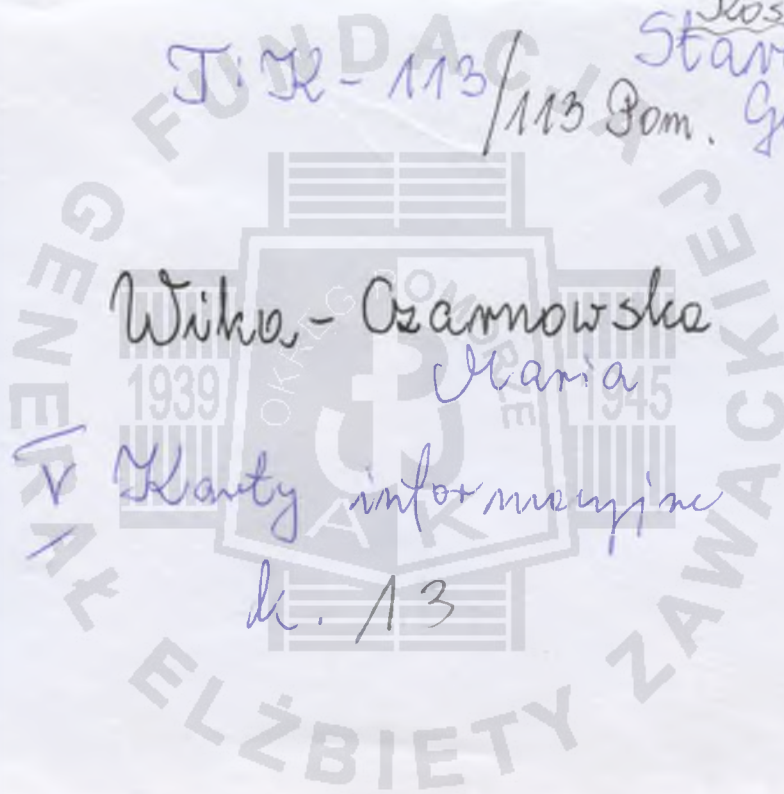 T: K - 113/113 Pom.
Wilka - Czarnowska
Maria
V Karty informacyjne
k. 13
FUNDACJA GENERAŁ ELŻBIETY ZAWACKIEJ
OKRĘG POMORZE
1939 1945
AK